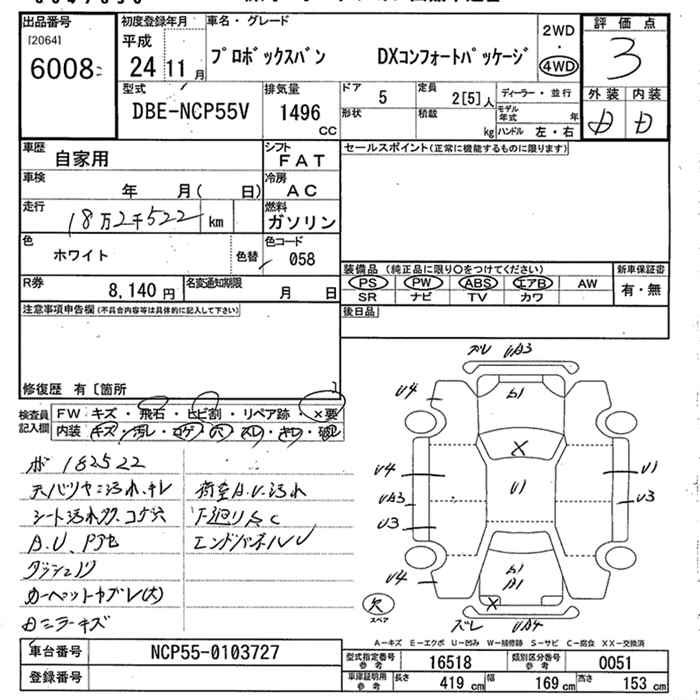 出品番号
[2064]
6008
初度登録年月
平成
24 11月
車名・グレード
プロボックスバン DXコンフォートパッケージ
2WD
・
4WD
評価点
3
外装 内装
D D
型式
DBE-NCP55V
排気量
1496
CC
ドア
5
定員
2[5]人
ディーラー・並行
形状
積載
kg
モデル年式 年
ハンドル 左・右
車歴
自家用
シフト
FAT
車検
年 月( 日)
冷房
AC
走行
18万2千522 km
燃料
ガソリン
色
ホワイト
色替
色コード
058
R券
8,140 円
名変通知期限
月 日
セールスポイント(正常に機能するものに限ります)
装備品(純正品に限り○をつけてください)
PS PW ABS エアB AW
SR ナビ TV カワ
新車保証書
有・無
後日品
注意事項申告欄(不具合内容等は具体的に記入して下さい)
修復歴 有〔箇所 〕
検査員記入欄
FW キズ・飛石・ヒビ割・リペア跡・×要
内装 キズ・汚レ・コゲ・穴・スレ・キレ・破レ
182522
シート汚れ
A.U.
ダッシュ
カーペットヤブレ(大)
Dミラーキズ
荷室A.U.汚れ
下廻り
エンドパネルU
ズレ UA3
U4
b1
X
U4
U1
U1
UA3
U3
U3
U4
b1
A1
X
欠
スペア
ズレ UA4
A-キズ E-エクボ U-凹み W-補修跡 S-サビ C-腐食 XX-交換済
車台番号
NCP55-0103727
登録番号
型式指定番号
参考
16518
類別区分番号
参考
0051
車庫証明用
参考
長さ
419 cm
幅
169 cm
高さ
153 cm